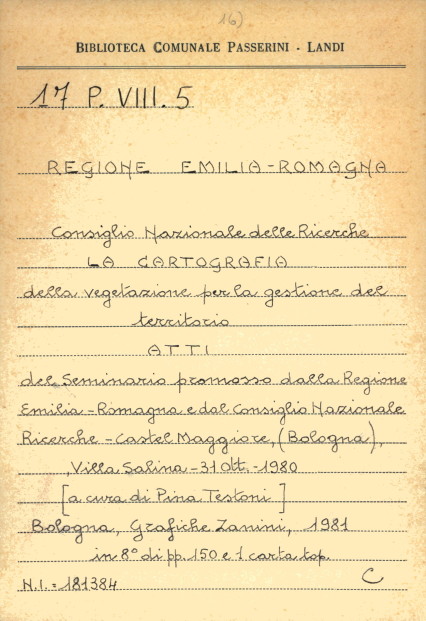 16)
BIBLIOTECA COMUNALE PASSERINI - LANDI
17 P. VIII. 5
REGIONE EMILIA-ROMAGNA
Consiglio Nazionale delle Ricerche
LA CARTOGRAFIA
della vegetazione per la gestione del
territorio
ATTI
del Seminario promosso dalla Regione
Emilia-Romagna e dal Consiglio Nazionale
Ricerche - Castel Maggiore, (Bologna),
Villa Salina - 31 Ott. - 1980
[a cura di Pina Testoni]
Bologna, Grafiche Zanini, 1981
in 8° di pp. 150 e 1 carta top.
N.I. = 181384 C